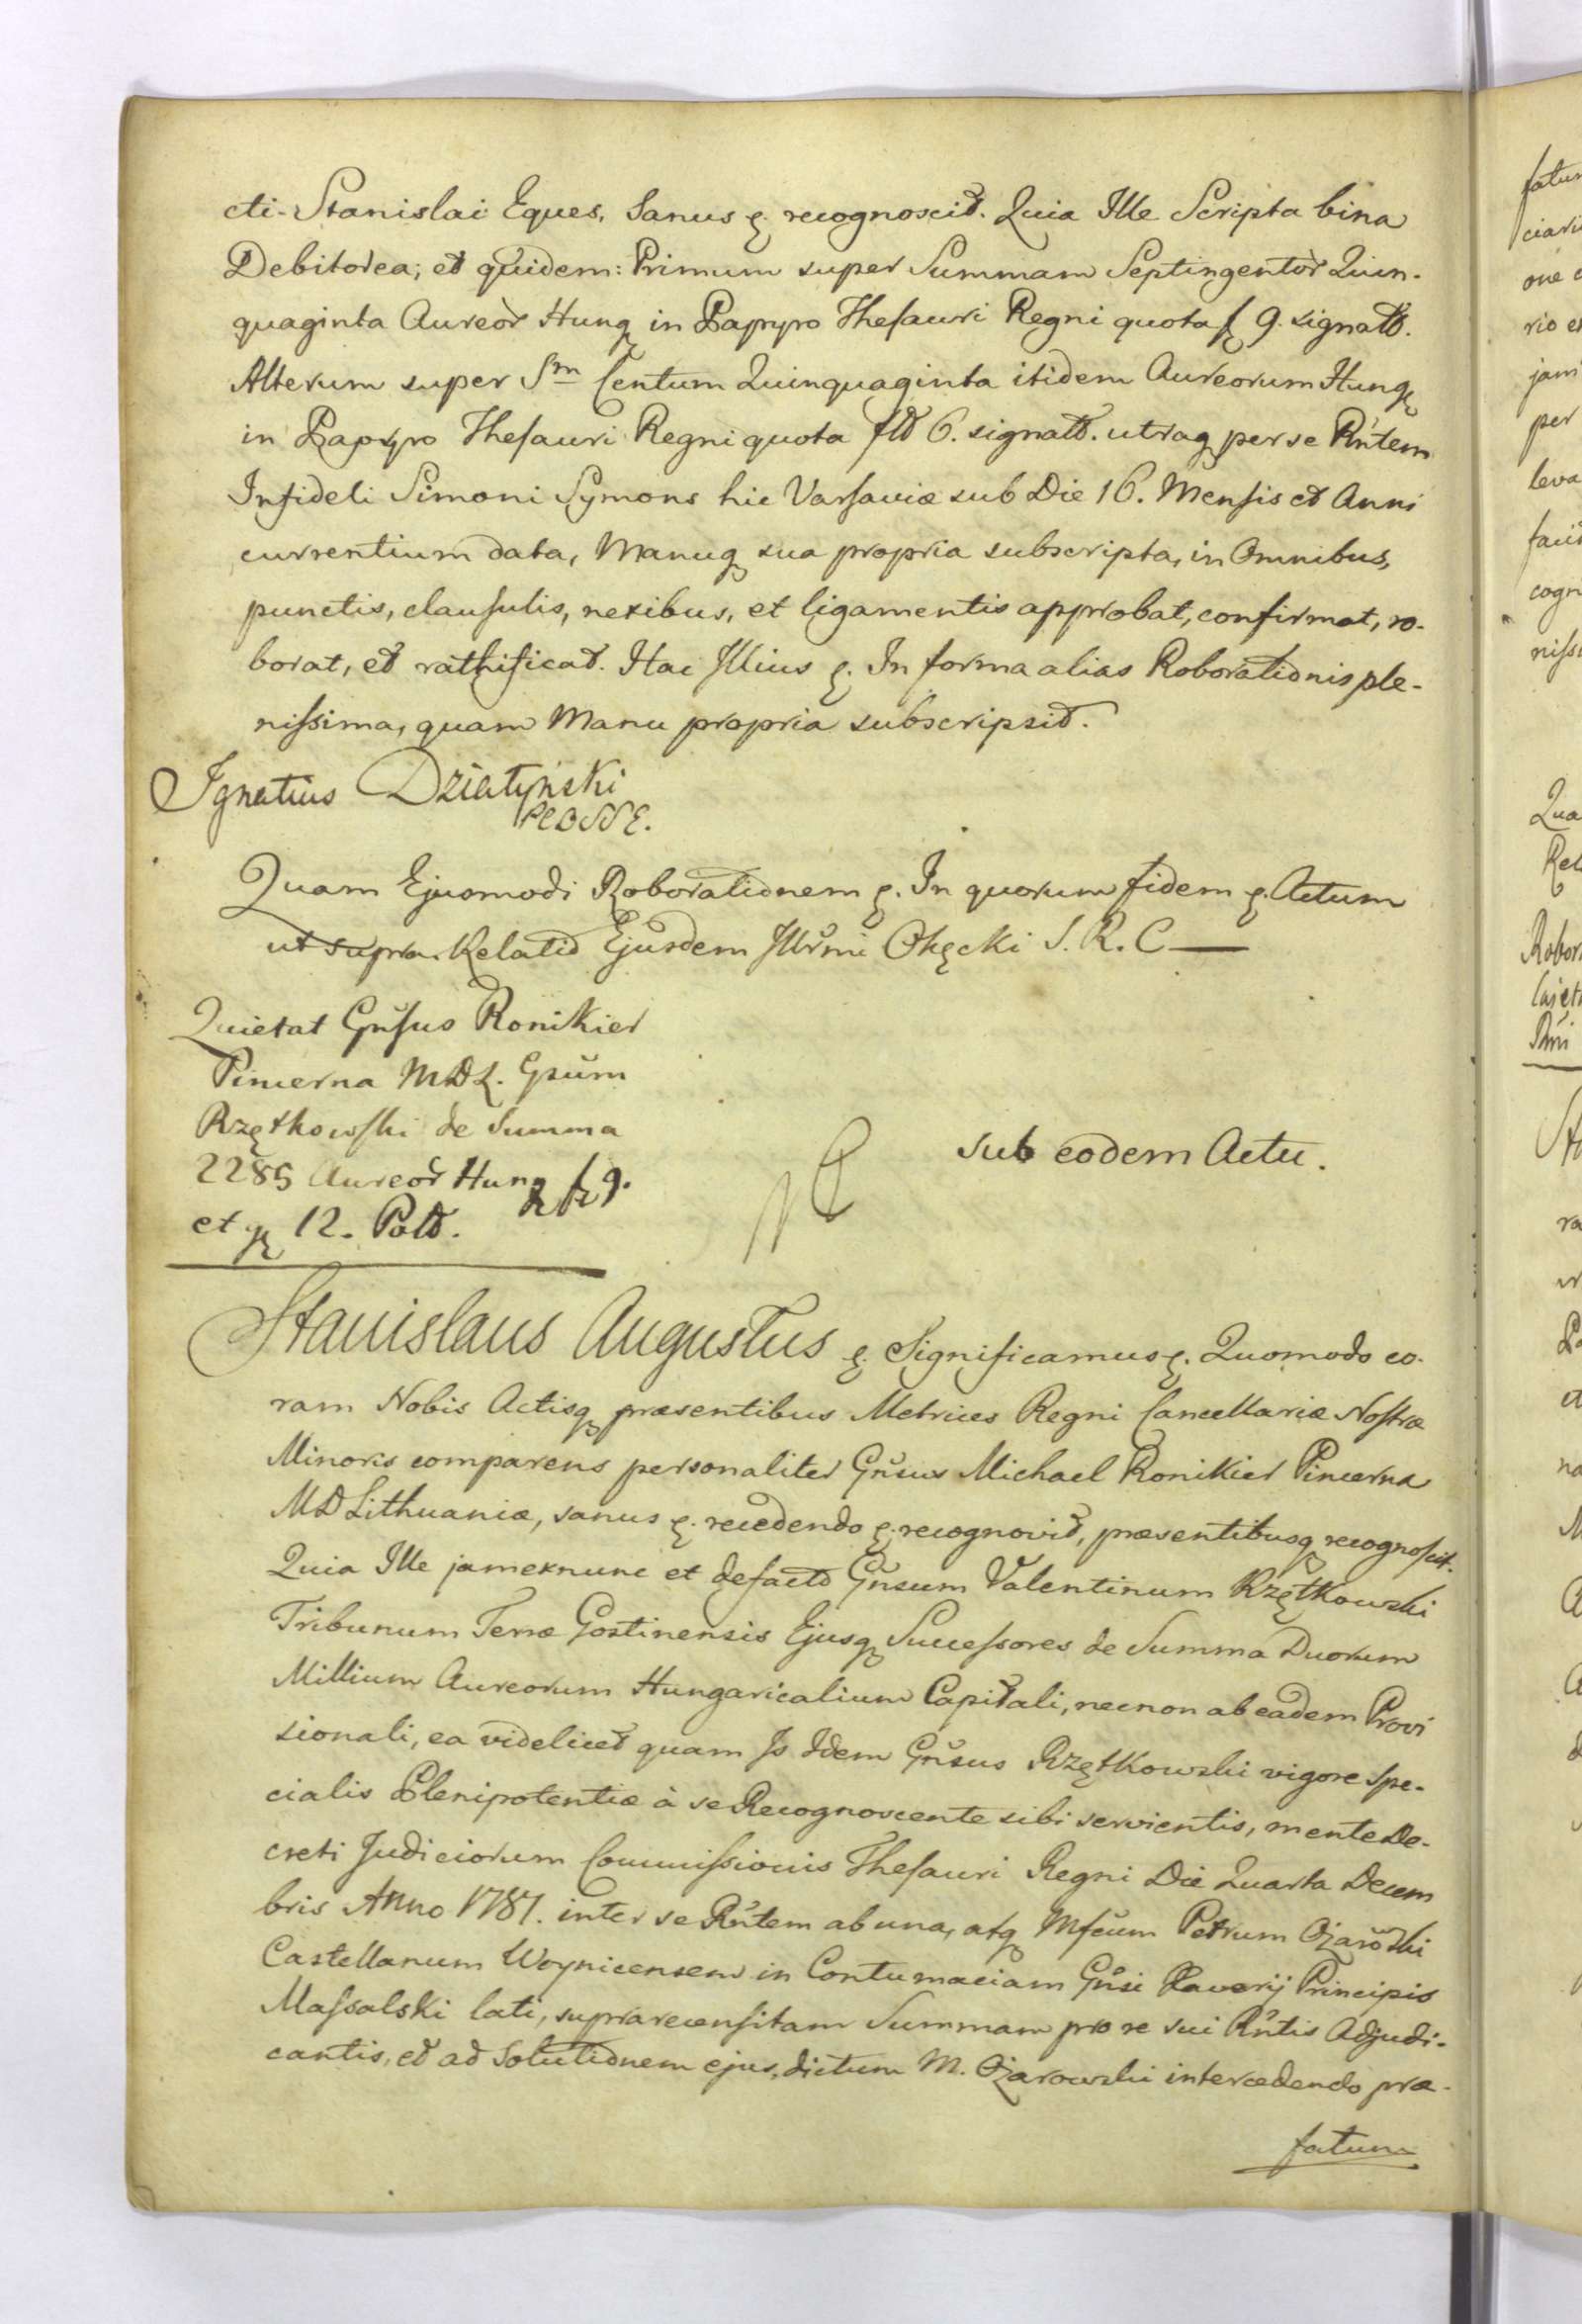 cti Stanislai Eques, Sanus &. recognoscit. Quia Ille Scripta bina
Debitorea; et quidem: Primum super Summam Septingentor Quin-
quaginta Aureor Hung in Papyro Thesauri Regni quota f 9. signatt.
Alterum super Sm Centum Quinquaginta itidem Aureorum Hung
in Papyro Thesauri Regni quota flt 6. signatt. utraq per se Rntem
Infideli Simoni Symons hic Varsaviæ sub Die 16. Mensis et Anni
currentium data, Manuq sua propria subscripta, in Omnibus,
punctis, clausulis, nexibus, et ligamentis approbat, confirmat, ro-
borat, et rathificat. Hac Illius &. In forma alias Roborationis ple-
nissima, quam Manu propria subscripsit.
Ignatius Działyński
Quam Ejusmodi Roborationem &. In quorum fidem &. Actum
ut supra. Relatio Ejusdem Illrmi Okęcki S. R. C
Quietat Gnsus Ronikier
Pincerna MDL. Gsum
Rzętkowski de Summa
2285 Aureor Hung f 9.
et gr 12. Poll.
sub eodem Actu.
Stanislaus Augustus &. Significamus &. Quomodo co-
ram Nobis Actisq præsentibus Metrices Regni Cancellariæ Nostræ
Minoris comparens personaliter Gnsus Michael Ronikier Pincerna
MD Lithuaniæ, sanus &. recedendo &. recognovit, præsentibusq recognoscit.
Quia Ille jamexnunc et defacto Gnsum Valentinum Rzętkowski
Tribunum Terræ Gostinensis Ejusq Successores de Summa Duorum
Millium Aureorum Hungaricalium Capitali, necnon ab eadem Provi
sionali, ea videlicet quam Is Idem Gnsus Rzętkowski vigore Spe-
cialis Plenipotentiæ à se Recognoscente sibi servientis, mente De-
creti Judiciorum Commissionis Thesauri Regni Die Quarta Decem
bris Anno 1787. inter se Rntem ab una, atq Mfcum Petrum Ożarowski
Castellanum Woynicensem in Contumaciam Gnsi Xaverij Principis
Massalski lati, suprarecensitam Summam pro re sui Rntis Adjudi-
cantis, et ad Solutionem ejus, dictum M. Ożarowski intercedendo præ-
fatum